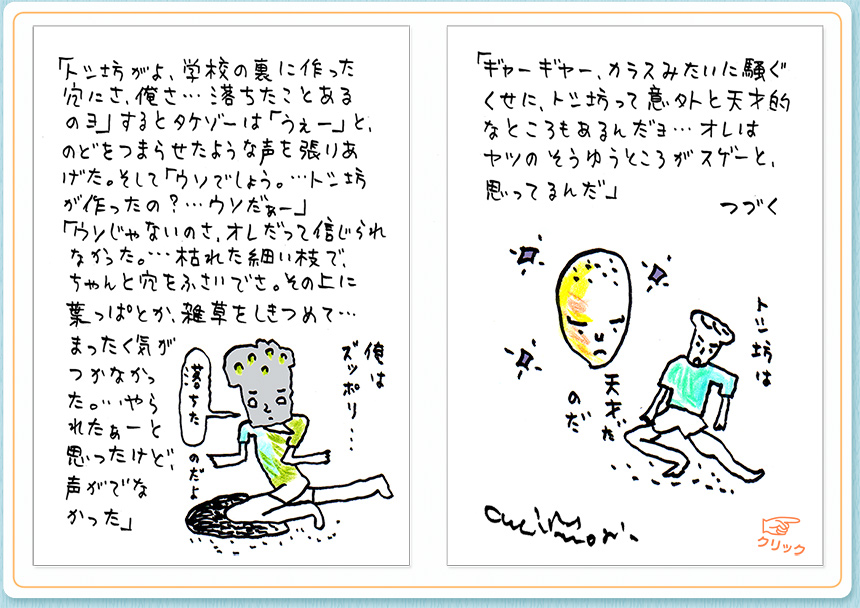 「トン坊がよ、学校の裏に作った
穴にさ、俺さ…落ちたことある
のヨ」するとタケゾーは「うぇー」と、
のどをつまらせたような声を張りあ
げた。そして「ウソでしょう。…トン坊
が作ったの？…ウソだぁー」
「ウソじゃないのさ、オレだって信じられ
なかった。…枯れた細い枝で、
ちゃんと穴をふさいでさ。その上に
葉っぱとか、雑草をしきつめて…
まったく気が
つかなかっ
た。…やら
れたぁーと
思ったけど、
声がでな
かった」
俺は
ズッポリ…
落ちた
のだよ
「ギャーギャー、カラスみたいに騒ぐ
くせに、トン坊って意外と天才的
なところもあるんだヨ…オレは
ヤツのそうゆうところがスゲーと、
思ってるんだ」
つづく
トン坊は
天才だ
のだ
クリック